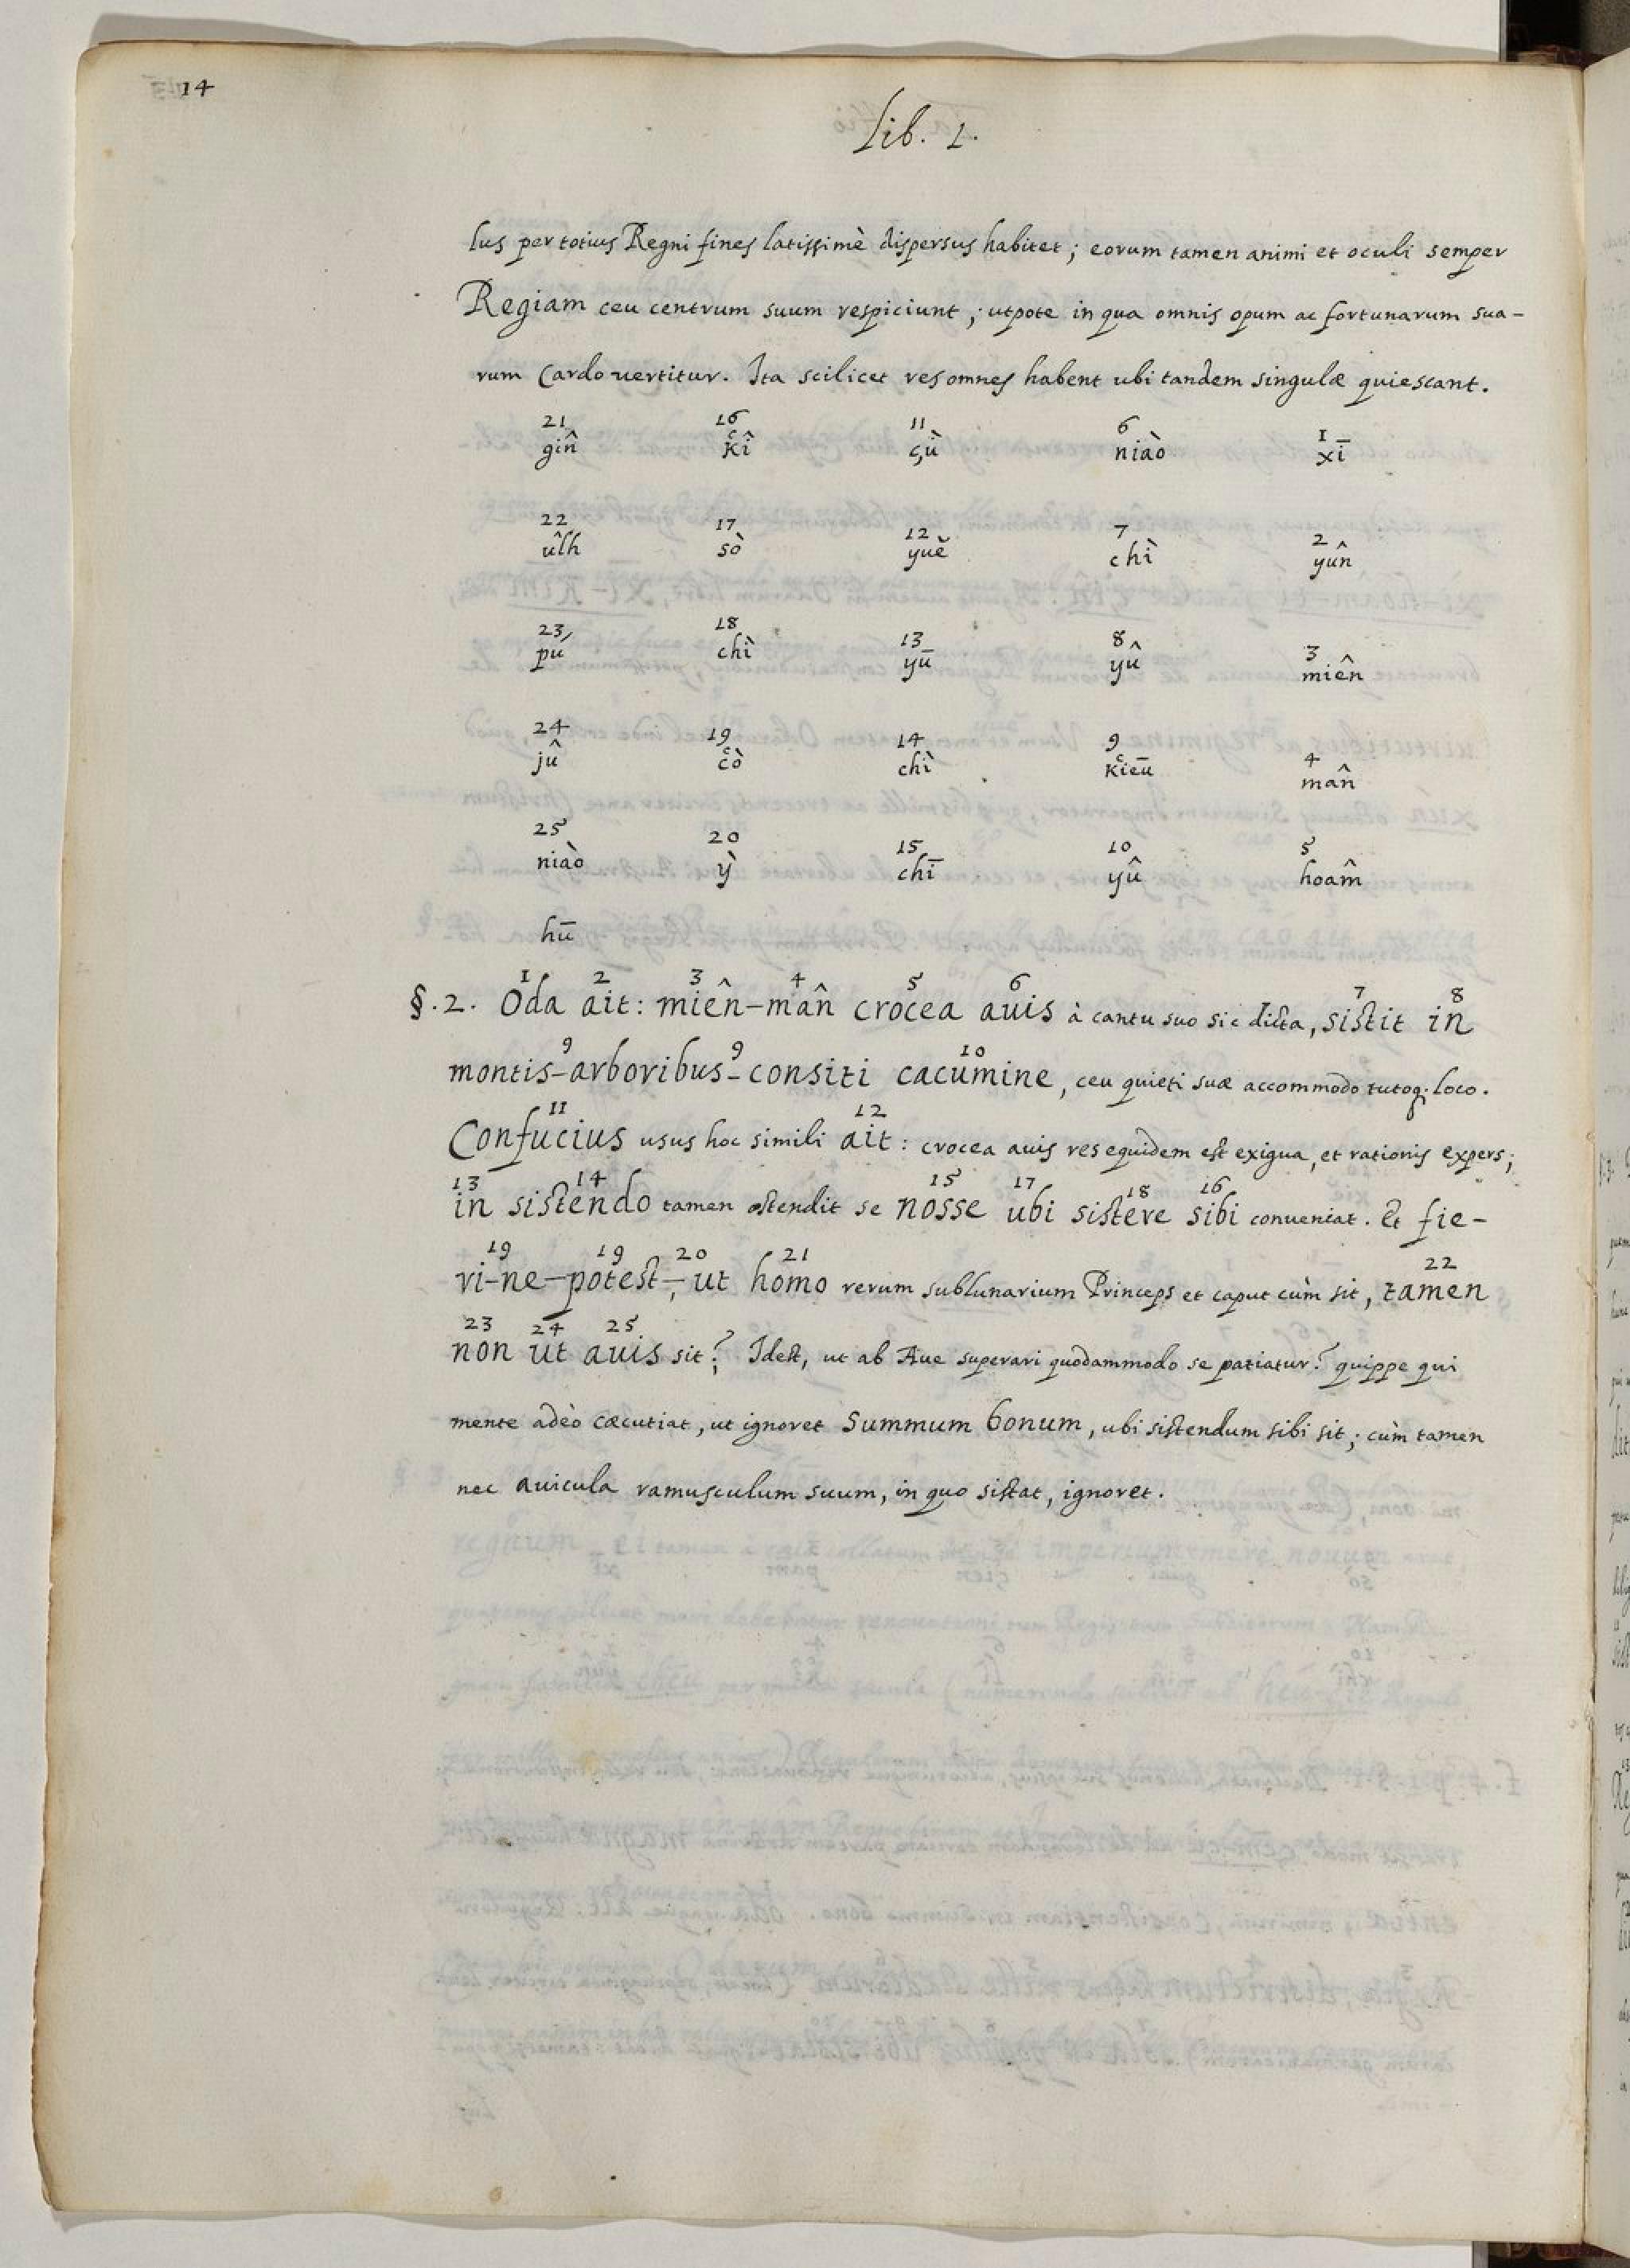 14
Lib. 1.
lus per totius Regni fines latissimè dispersus habitet; eorum tamen animi et oculi semper
Regiam ceu centrum suum respiciunt; utpote in qua omnis opum ac fortunarum sua-
rum Cardo vertitur. Ita scilicet res omnes habent ubi tandem singulæ quiescant.
21 16 11 6 1
gîn kĉî çù niào xī
22 17 12 7 2
ûlh sò yuě chì yûn
23 18 13 8 3
pú chì yū yû miên
24 19 14 9 4
jû cĉò chì kĉieū mân
25 20 15 10 5
niào ỳ chī yû hoâm
hū
1 2 3 4 5 6 7 8
§.2. Oda ait: miên-mân crocea avis à cantu suo sic dicta, sistit in
9 9 10
montis-arboribus-consiti cacumine, ceu quieti suæ accommodo tutoq; loco.
11 12
Confucius usus hoc simili ait: crocea avis res equidem est exigua, et rationis expers;
13 14 15 17 18 16
in sistendo tamen ostendit se nosse ubi sistere sibi conveniat. Et fie-
19 19 20 21 22
ri-ne-potest, ut homo rerum sublunarium Princeps et caput cùm sit, tamen
23 24 25
non ut avis sit? Idest, ut ab Ave superari quodammodo se patiatur? quippe qui
mente adeò cæcutiat, ut ignoret Summum bonum, ubi sistendum sibi sit; cùm tamen
nec avicula ramusculum suum, in quo sistat, ignoret.